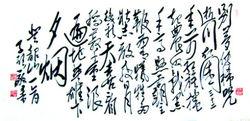 别梦依稀咒
逝川故园三
十二年前红旗
卷起农奴戟
黑手高悬霸主
鞭为有牺牲
多壮志敢教日月
换新天喜看
稻菽千重浪
遍地英雄下
夕烟
韶山一首